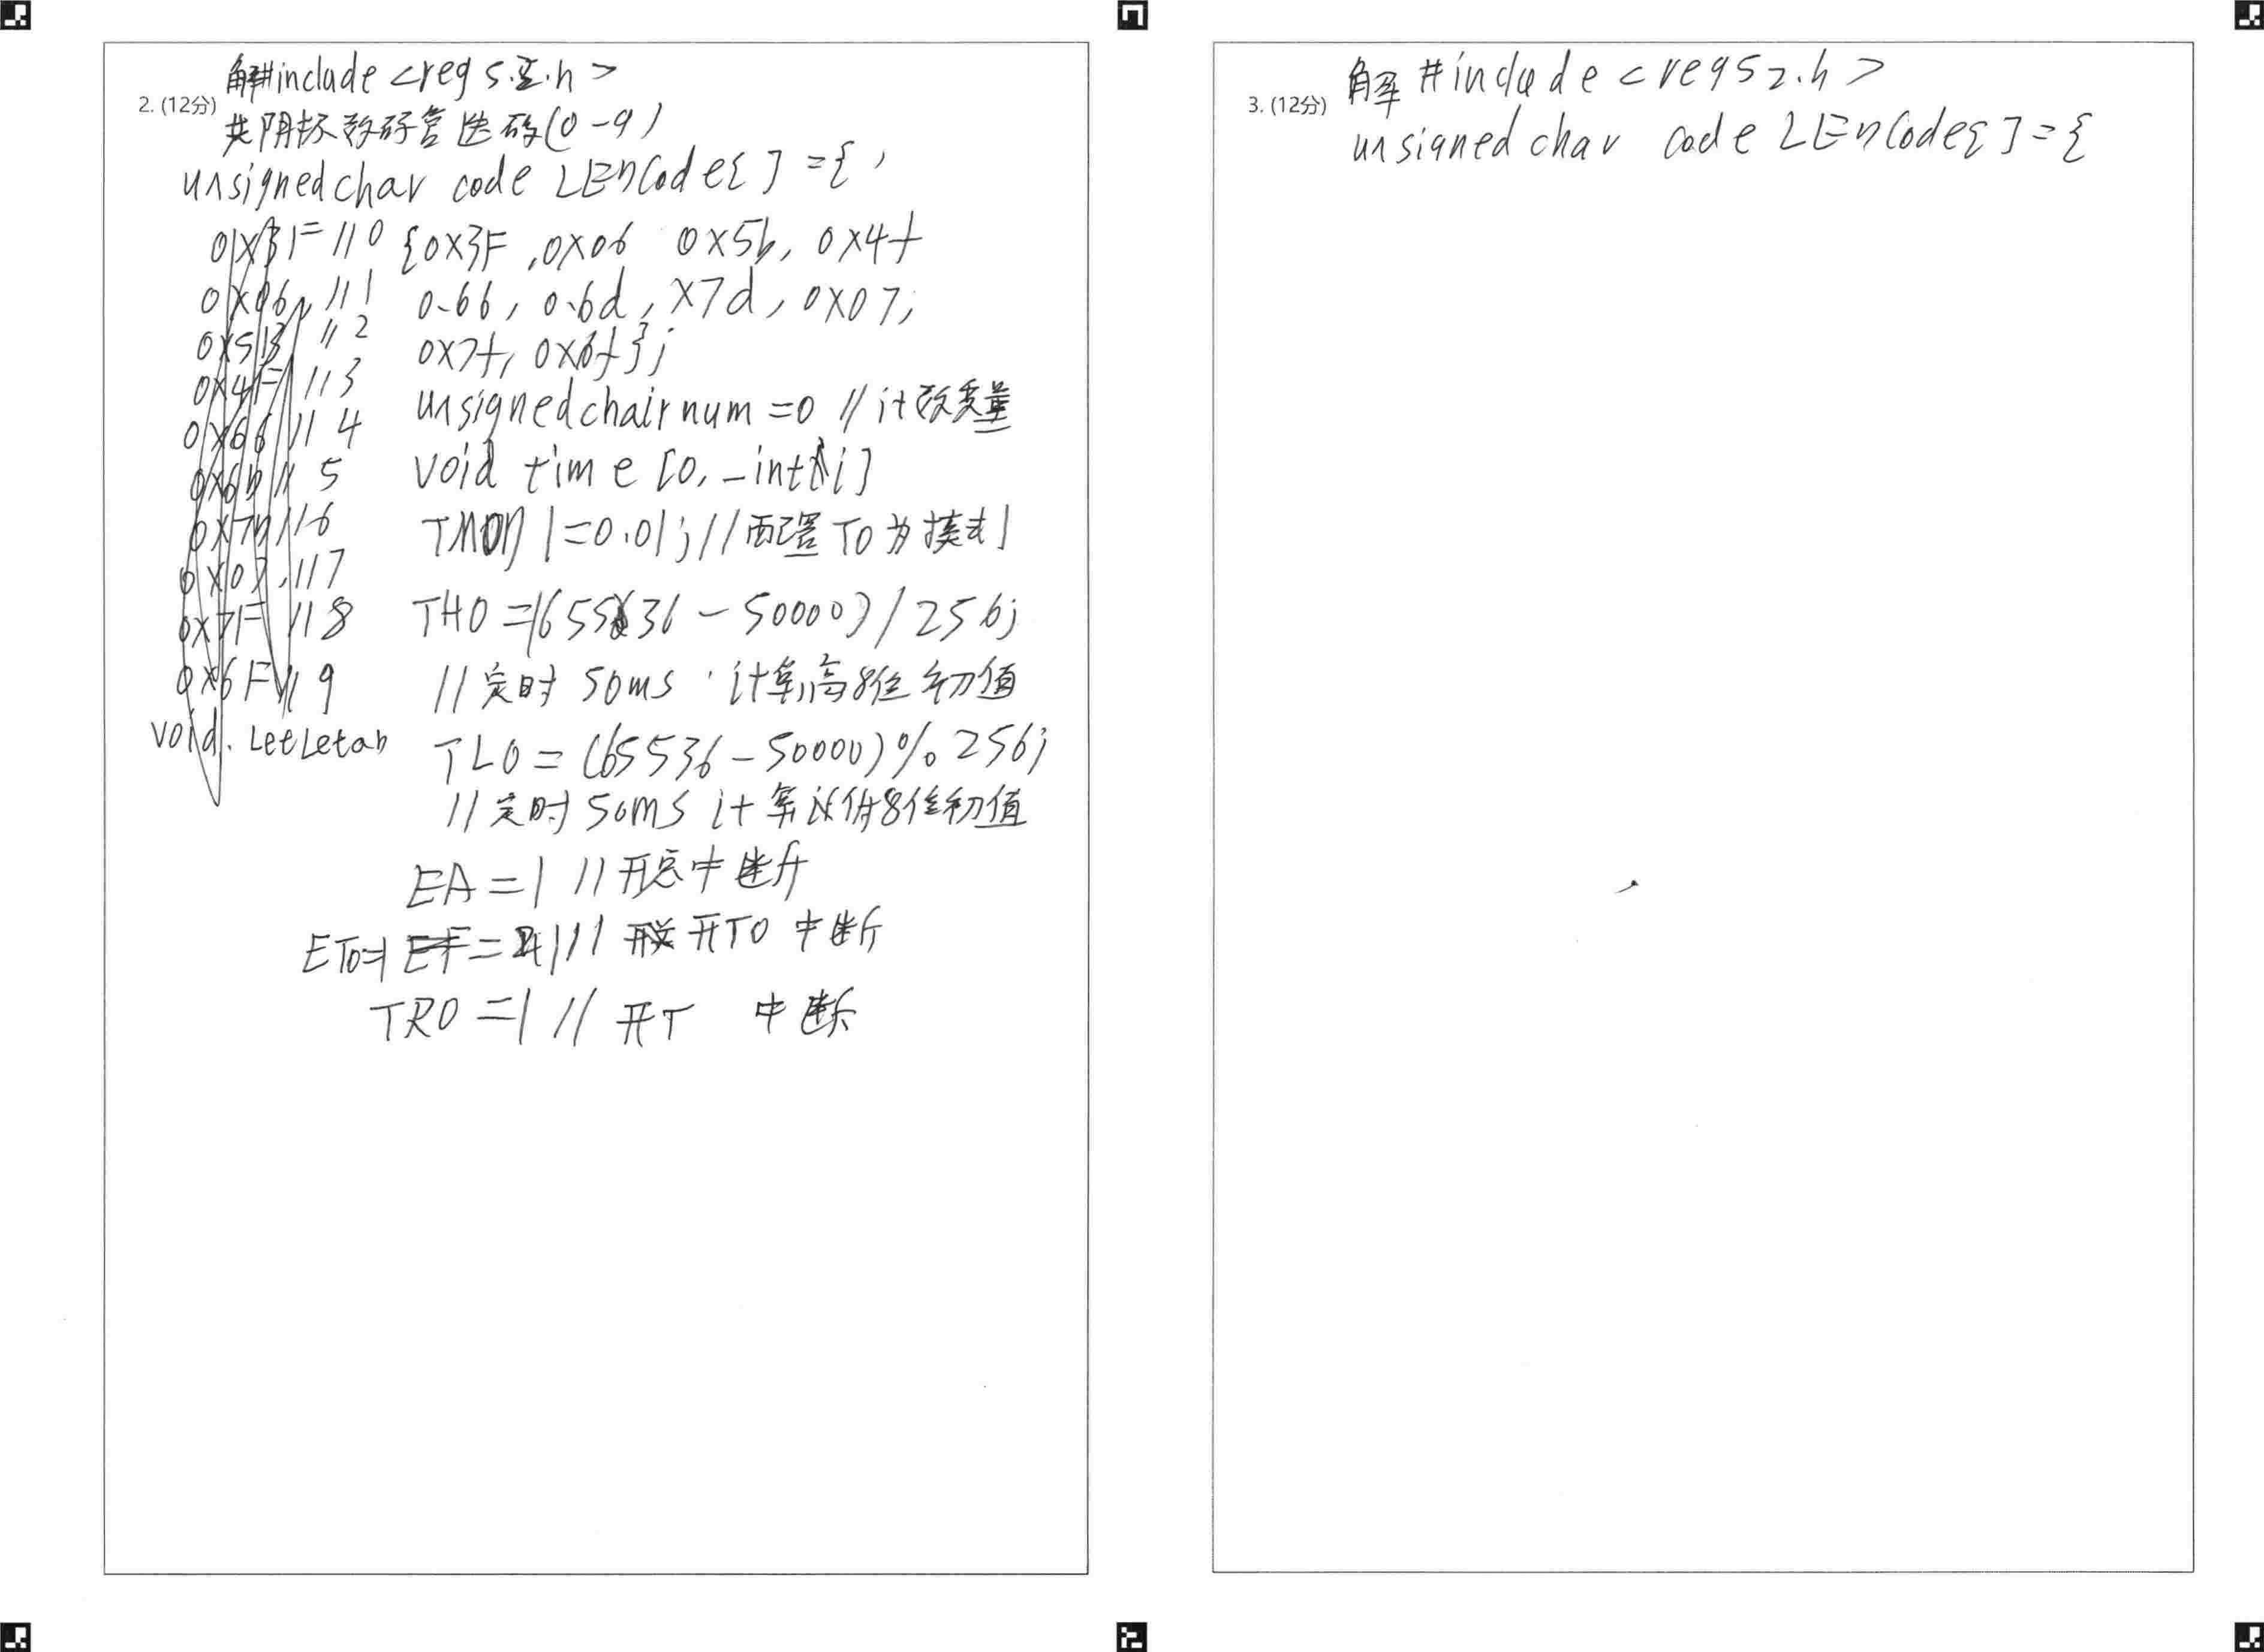 2. (12分)
解#include <reg 5.2.h>
共阴极数码管选码(0-9)
unsigned char code LEDCode{ ] ={ ,
0x3F //0
0x06, //1
0x5B //2
0x4F //3
0x66 //4
0x6D // 5
0x7D //6
0x07, //7
0x7F //8
0x6F // 9
void. LeeLetab
{0x3F ,0x06 0x5b, 0x4f
0.66, 0.6d, x7d, 0x07,
0x7f, 0x6f};
unsigned chair num =0 //计改变量
void time [0, _int i]
TMOD |=0.01; //配置T0为模式1
TH0 =(65536 - 50000) / 256;
//定时 50ms 计算高8位初值
TL0 = (65536 - 50000) % 256;
//定时 50ms 计算 8位初值
EA =1 //开总中断
ET0=1 // 开T0 中断
TR0 =1 // 开T 中断
3. (12分)
解 #include <reg52.h>
unsigned char code LEDCode{ ] = {